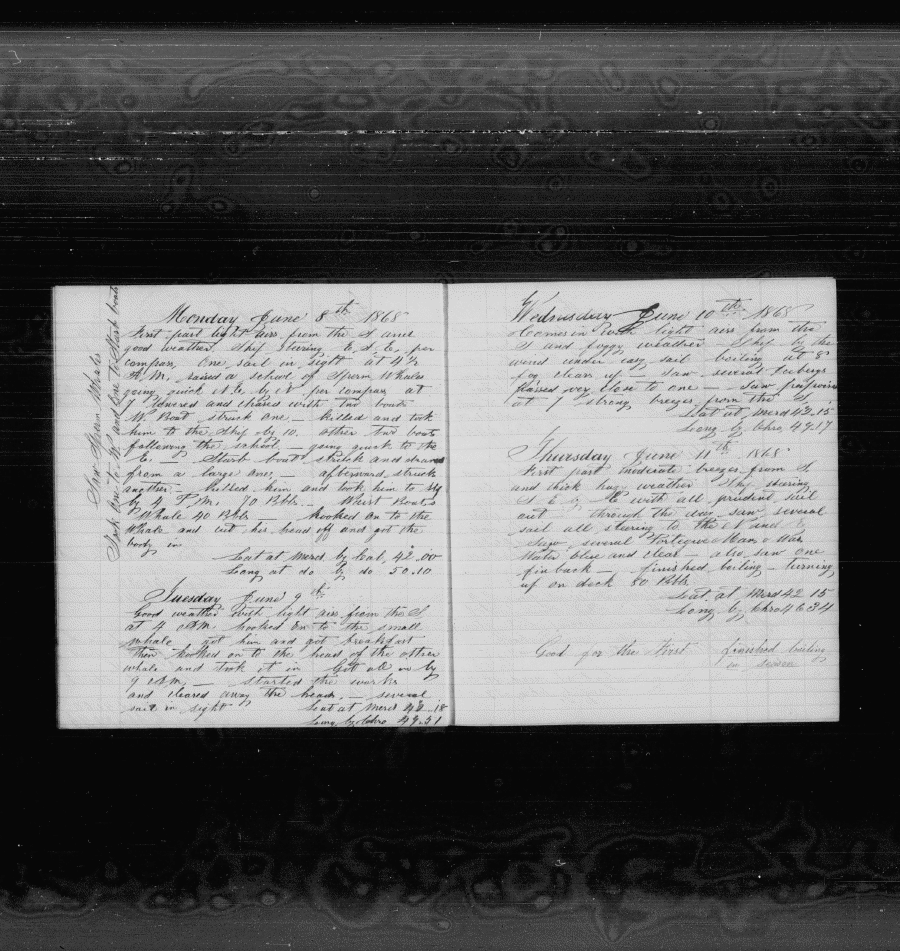 Saw Sperm Whales
Took One to W. and One to Start boats
Monday June 8th 1868
First part light airs from the S and
good weather. Ship steering E. S. E. per
compass, One sail in sight at 4 1/2
A.M. raised a school of Sperm Whales
going quick N.E. by N per compas at
lowered and chased with two boats
W Boat struck one — killed and took
him to the Ship by 10. other two boats
following the school going quick to the
E. — Starb boat struck and
from a large one, afterward struck
another — killed him and took him to Ship
by 4 P.M. 70 Bbls. Boats
Whale 40 Bbls — hooked on to the
Whale and cut his head off and got the
body in
Lat at Merd by Cal, 42..00
Long at do by do 50.10
Tuesday June 9th
Good weather with light airs from the S
at 4 A.M. hooked on to the small
whale got him and got breakfast
then hooked on to the head of the other
whale and took it in Got all in by
9 A.M. — started the works
and cleared away the heads, — several
sail in sight Lat at Merd 42..18
Long by Chro 49.51
Wednesday June 10th 1868
Comes in with light airs from the
S and foggy weather — Ship by the
wind under easy sail boiling at 8
fog clears up — saw several Icebergs
passed very close to one — Saw
at strong breezes from the S.
Lat at Merd 42.15
Long by Chro, 49.17
Thursday June 11th 1868
First part moderate breezes from S.
and thick fogy weather Ship steering
S E by E with all prudent sail
out through the day saw several
sail all steering to the N and
Saw several Portugue Man o War
Water blue and clear — also saw one
fin back — finished boiling — turning
up on deck 80 Bbls.
Lat at Merd 42 15
Long by Chro 46 34
Good for the First finished boiling
on